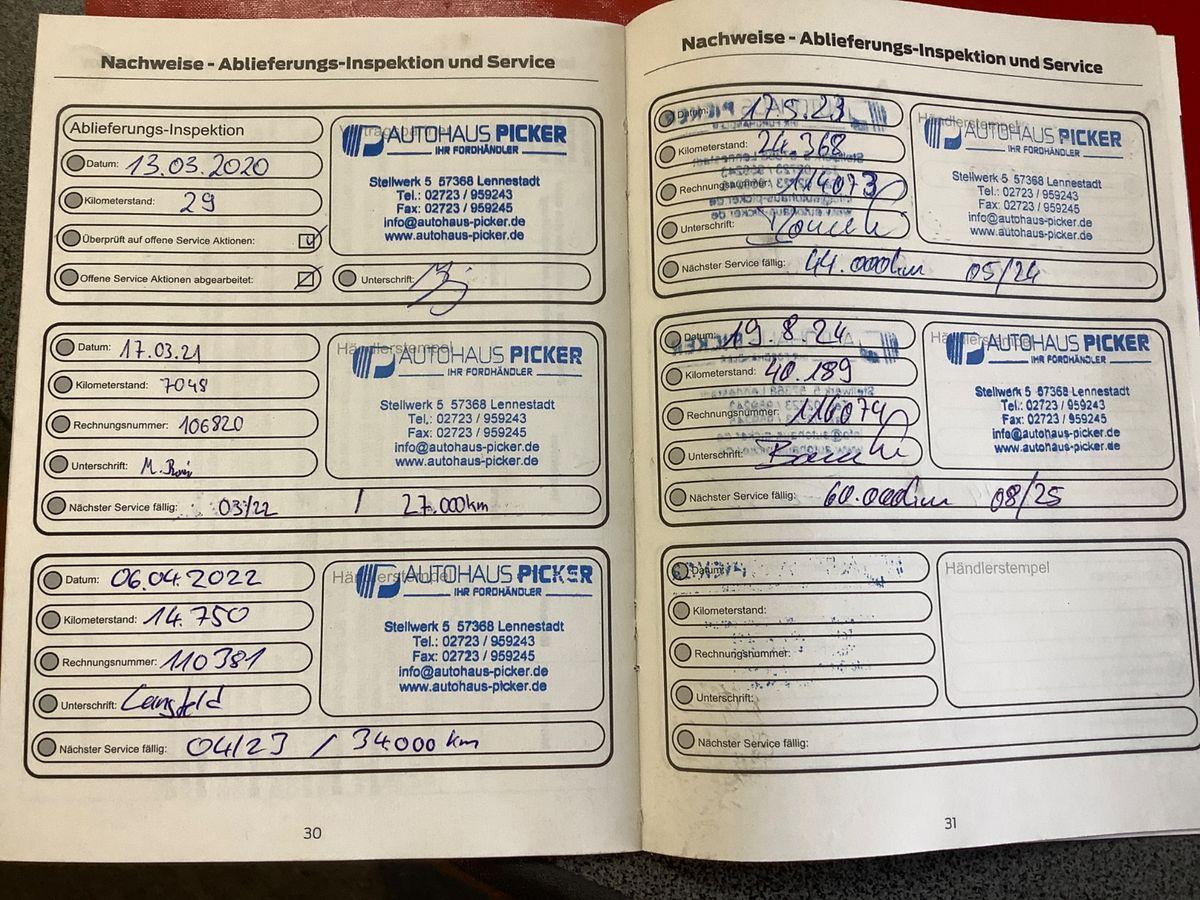 Nachweise - Ablieferungs-Inspektion und Service
Ablieferungs-Inspektion
Datum: 13.03.2020
Kilometerstand: 29
Überprüft auf offene Service Aktionen:
Offene Service Aktionen abgearbeitet:
AUTOHAUS PICKER
IHR FORDHÄNDLER
Stellwerk 5 57368 Lennestadt
Tel.: 02723 / 959243
Fax: 02723 / 959245
info@autohaus-picker.de
www.autohaus-picker.de
Unterschrift:
Datum: 17.03.21
Kilometerstand: 7048
Rechnungsnummer: 106820
Unterschrift:
Händlerstempel
AUTOHAUS PICKER
IHR FORDHÄNDLER
Stellwerk 5 57368 Lennestadt
Tel.: 02723 / 959243
Fax: 02723 / 959245
info@autohaus-picker.de
www.autohaus-picker.de
Nächster Service fällig: 03/22 / 27.000km
Datum: 06.04.2022
Kilometerstand: 14.750
Rechnungsnummer: 110381
Unterschrift:
Händlerstempel
AUTOHAUS PICKER
IHR FORDHÄNDLER
Stellwerk 5 57368 Lennestadt
Tel.: 02723 / 959243
Fax: 02723 / 959245
info@autohaus-picker.de
www.autohaus-picker.de
Nächster Service fällig: 04/23 / 34000 km
30
Nachweise - Ablieferungs-Inspektion und Service
Datum: 17.5.23
Kilometerstand: 24.368
Rechnungsnummer: 114073
Unterschrift:
Händlerstempel
AUTOHAUS PICKER
IHR FORDHÄNDLER
Stellwerk 5 57368 Lennestadt
Tel.: 02723 / 959243
Fax: 02723 / 959245
info@autohaus-picker.de
www.autohaus-picker.de
Nächster Service fällig: 44.000km 05/24
Datum: 19.8.24
Kilometerstand: 40.189
Rechnungsnummer:
Unterschrift:
Händlerstempel
AUTOHAUS PICKER
IHR FORDHÄNDLER
Stellwerk 5 57368 Lennestadt
Tel.: 02723 / 959243
Fax: 02723 / 959245
info@autohaus-picker.de
www.autohaus-picker.de
Nächster Service fällig: 60.000km 08/25
Datum:
Kilometerstand:
Rechnungsnummer:
Unterschrift:
Händlerstempel
Nächster Service fällig:
31